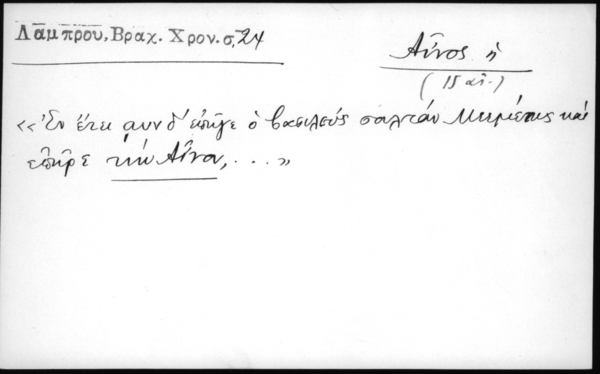 Λάμπρου, Βραχ. Χρον. σ. 24
Αἶνος ἡ
(15 αἰ.)
«Ἐν ἔτει αυνδ' ἐπῆγε ὁ βασιλεὺς σουλτάν Μεεμέτης καὶ
ἐπῆρε τὴν Αἶνον, ...»